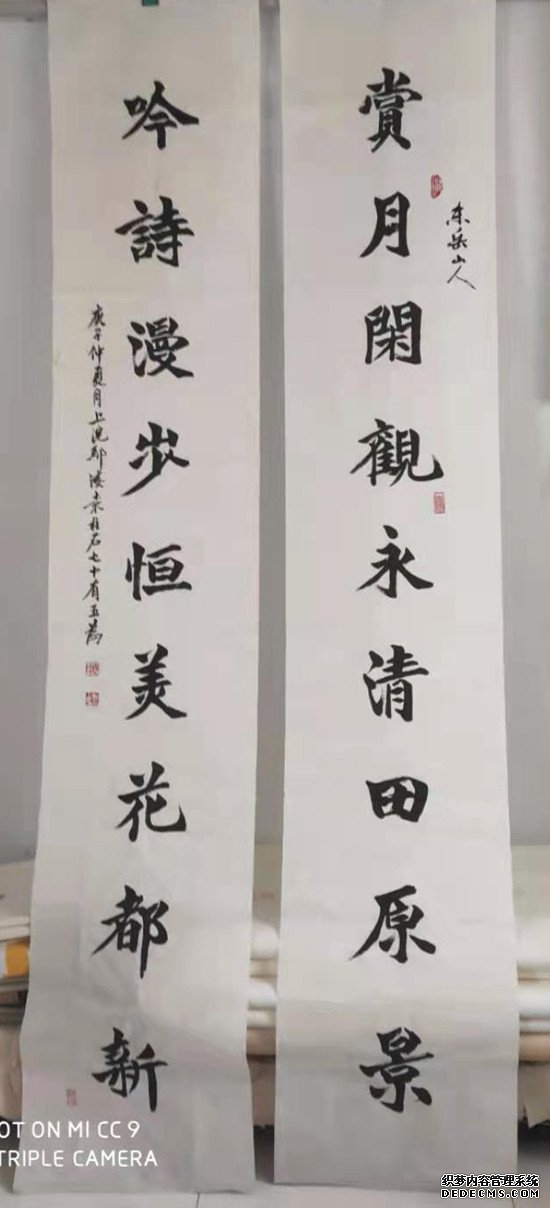 賞月閑觀永清田原景
东岳山人
吟詩漫步恒美花都新
庚子仲夏月上浣 石七十有五
OT ON MI CC 9
TRIPLE CAMERA
织梦内容管理系统
DEDECMS.COM